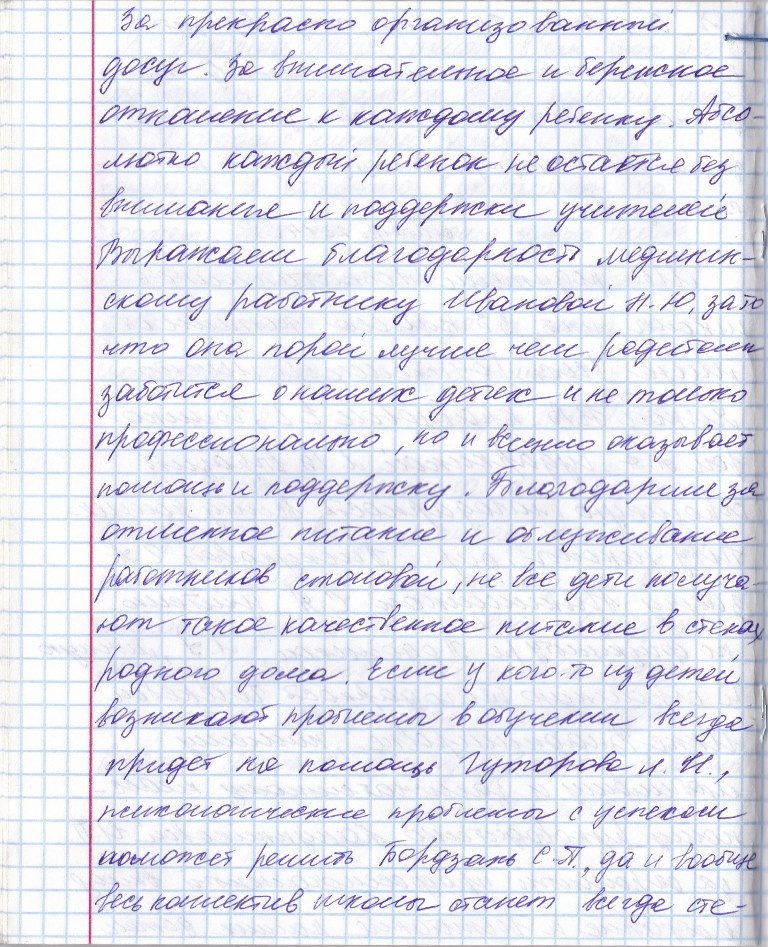 За прекрасно организованный
досуг. За внимательное и бережное
отношение к каждому ребенку. Абсо-
лютно каждый ребенок не остается без
внимания и поддержки учителей
Выражаем благодарность медицин-
скому работнику Ивановой Н.Ю, за то
что она порой лучше чем родители
заботится о наших детках и не только
профессионально, но и всецело оказывает
помощь и поддержку. Благодарим за
отменное питание и обслуживание
работников столовой, не все дети получа-
ют такое качественное питание в стенах
родного дома. Если у кого-то из детей
возникают проблемы в обучении всегда
придет на помощь Гуторова Л.И.,
психологические проблемы с успехом
поможет решить С.П., да и вообще
весь коллектив школы станет всегда сте-